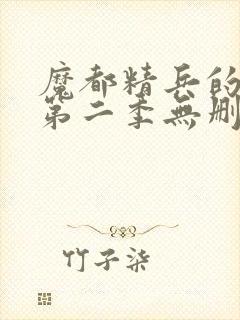 魔都精兵的
第二季無刪
竹子柒